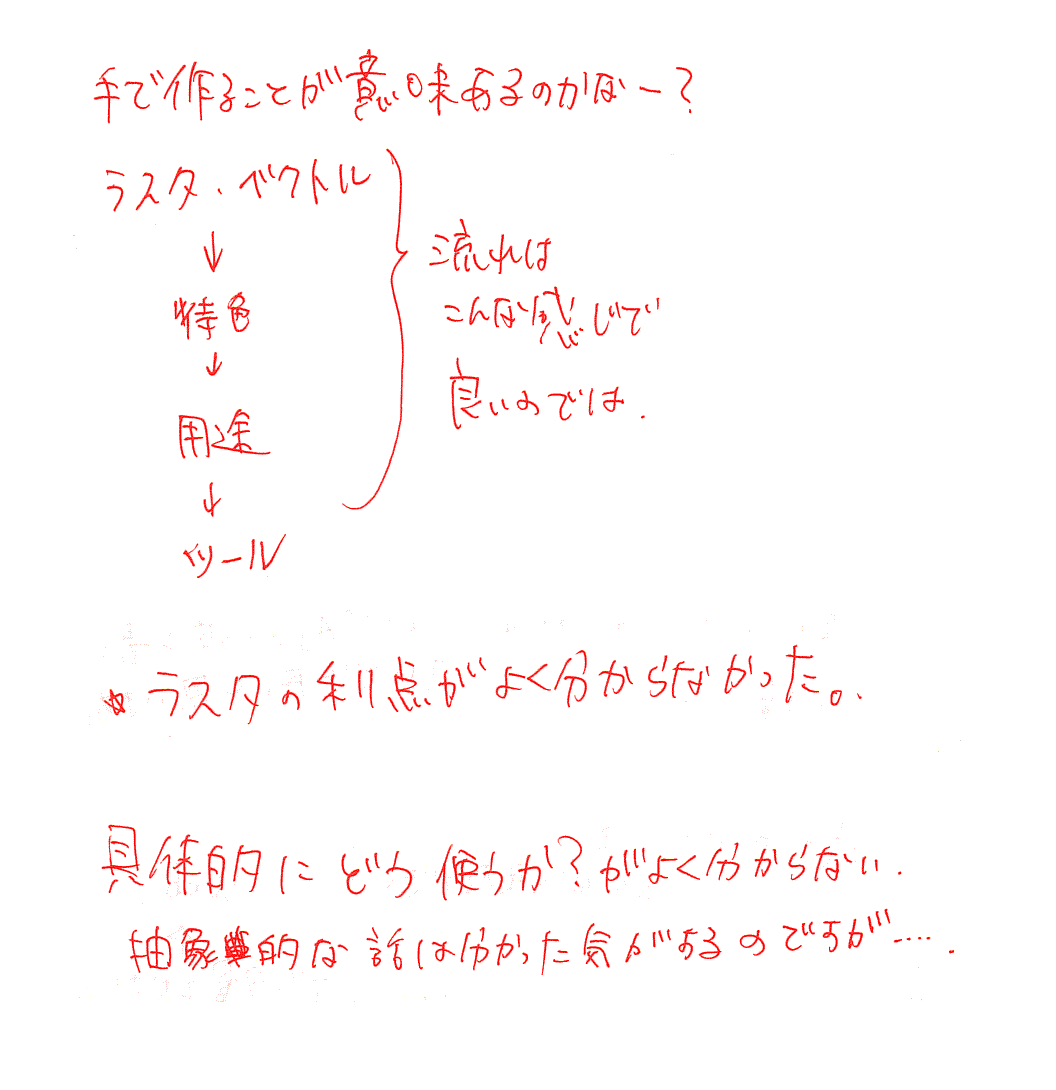 手で作ることが意味あるのかなー?
ラスタ・ベクトル
↓
特色
↓
用途
↓
ツール
流れは
こんな感じで
良いのでは.
☆ラスタの利点がよく分からなかった。.
具体的にどう使うか?がよく分からない.
抽象的な話は分かった気がするのですが…..